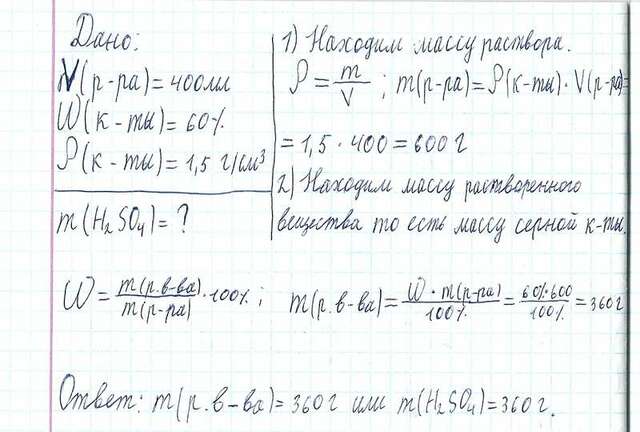 Дано:
V(р-ра)=400мл
W(к-ты)=60%
ρ(к-ты)=1,5 г/см³
m(H₂SO₄)=?
1) Находим массу раствора.
ρ=m/V; m(р-ра)=ρ(к-ты)·V(р-ра)=
=1,5·400=600г
2) Находим массу растворенного
вещества то есть массу серной к-ты.
W=m(р.в-ва)/m(р-ра)·100%; m(р.в-ва)=W·m(р-ра)/100%=60%·600/100%=360г
Ответ: m(р.в-ва)=360г или m(H₂SO₄)=360г.